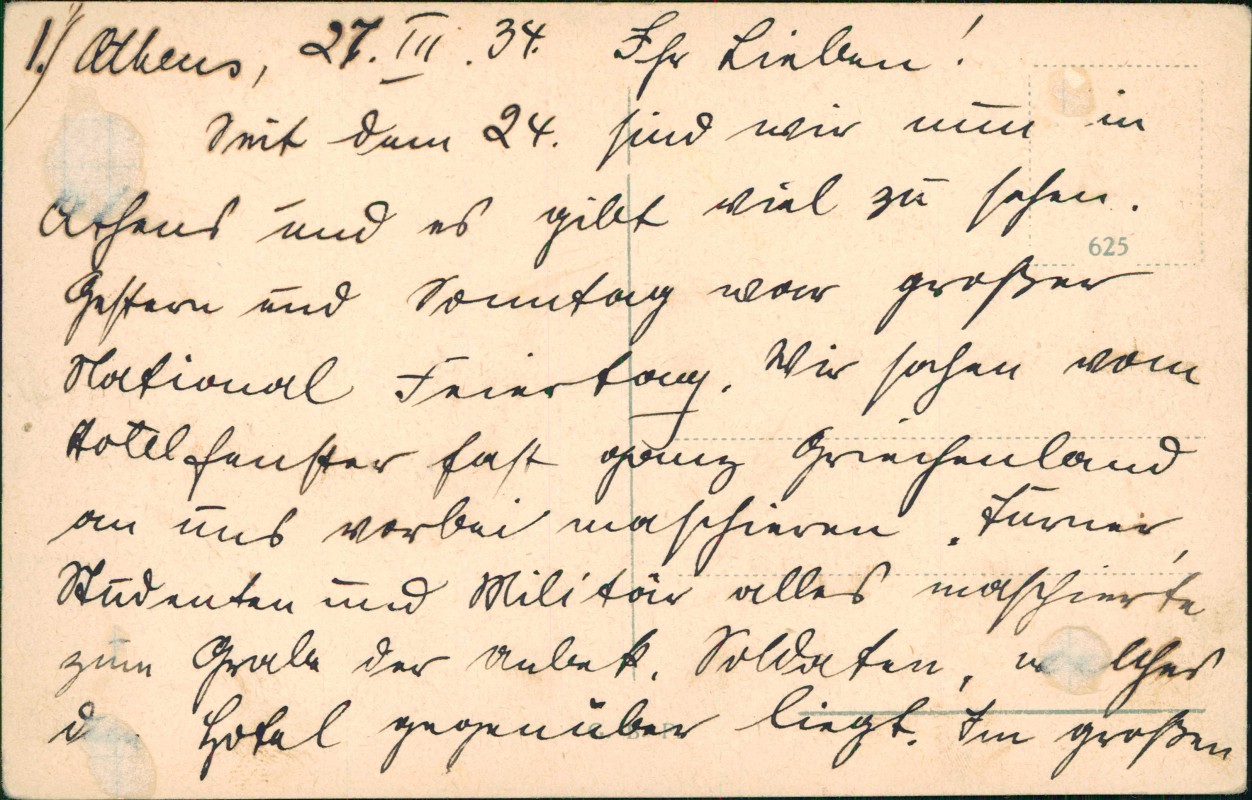 1.) Athens, 27. III. 34. Ihr Lieben!
Seit dem 24. sind wir nun in
Athens und es gibt viel zu sehen.
625
Gestern und Sonntag war großer
National Feiertag. Wir sahen vom
Hotelfenster fast ganz Griechenland
an uns vorbei maschieren. Turner,
Studenten und Militär alles maschierte
zum Grabe der unbek. Soldaten, welches
d Hotel gegenüber liegt. Im großen